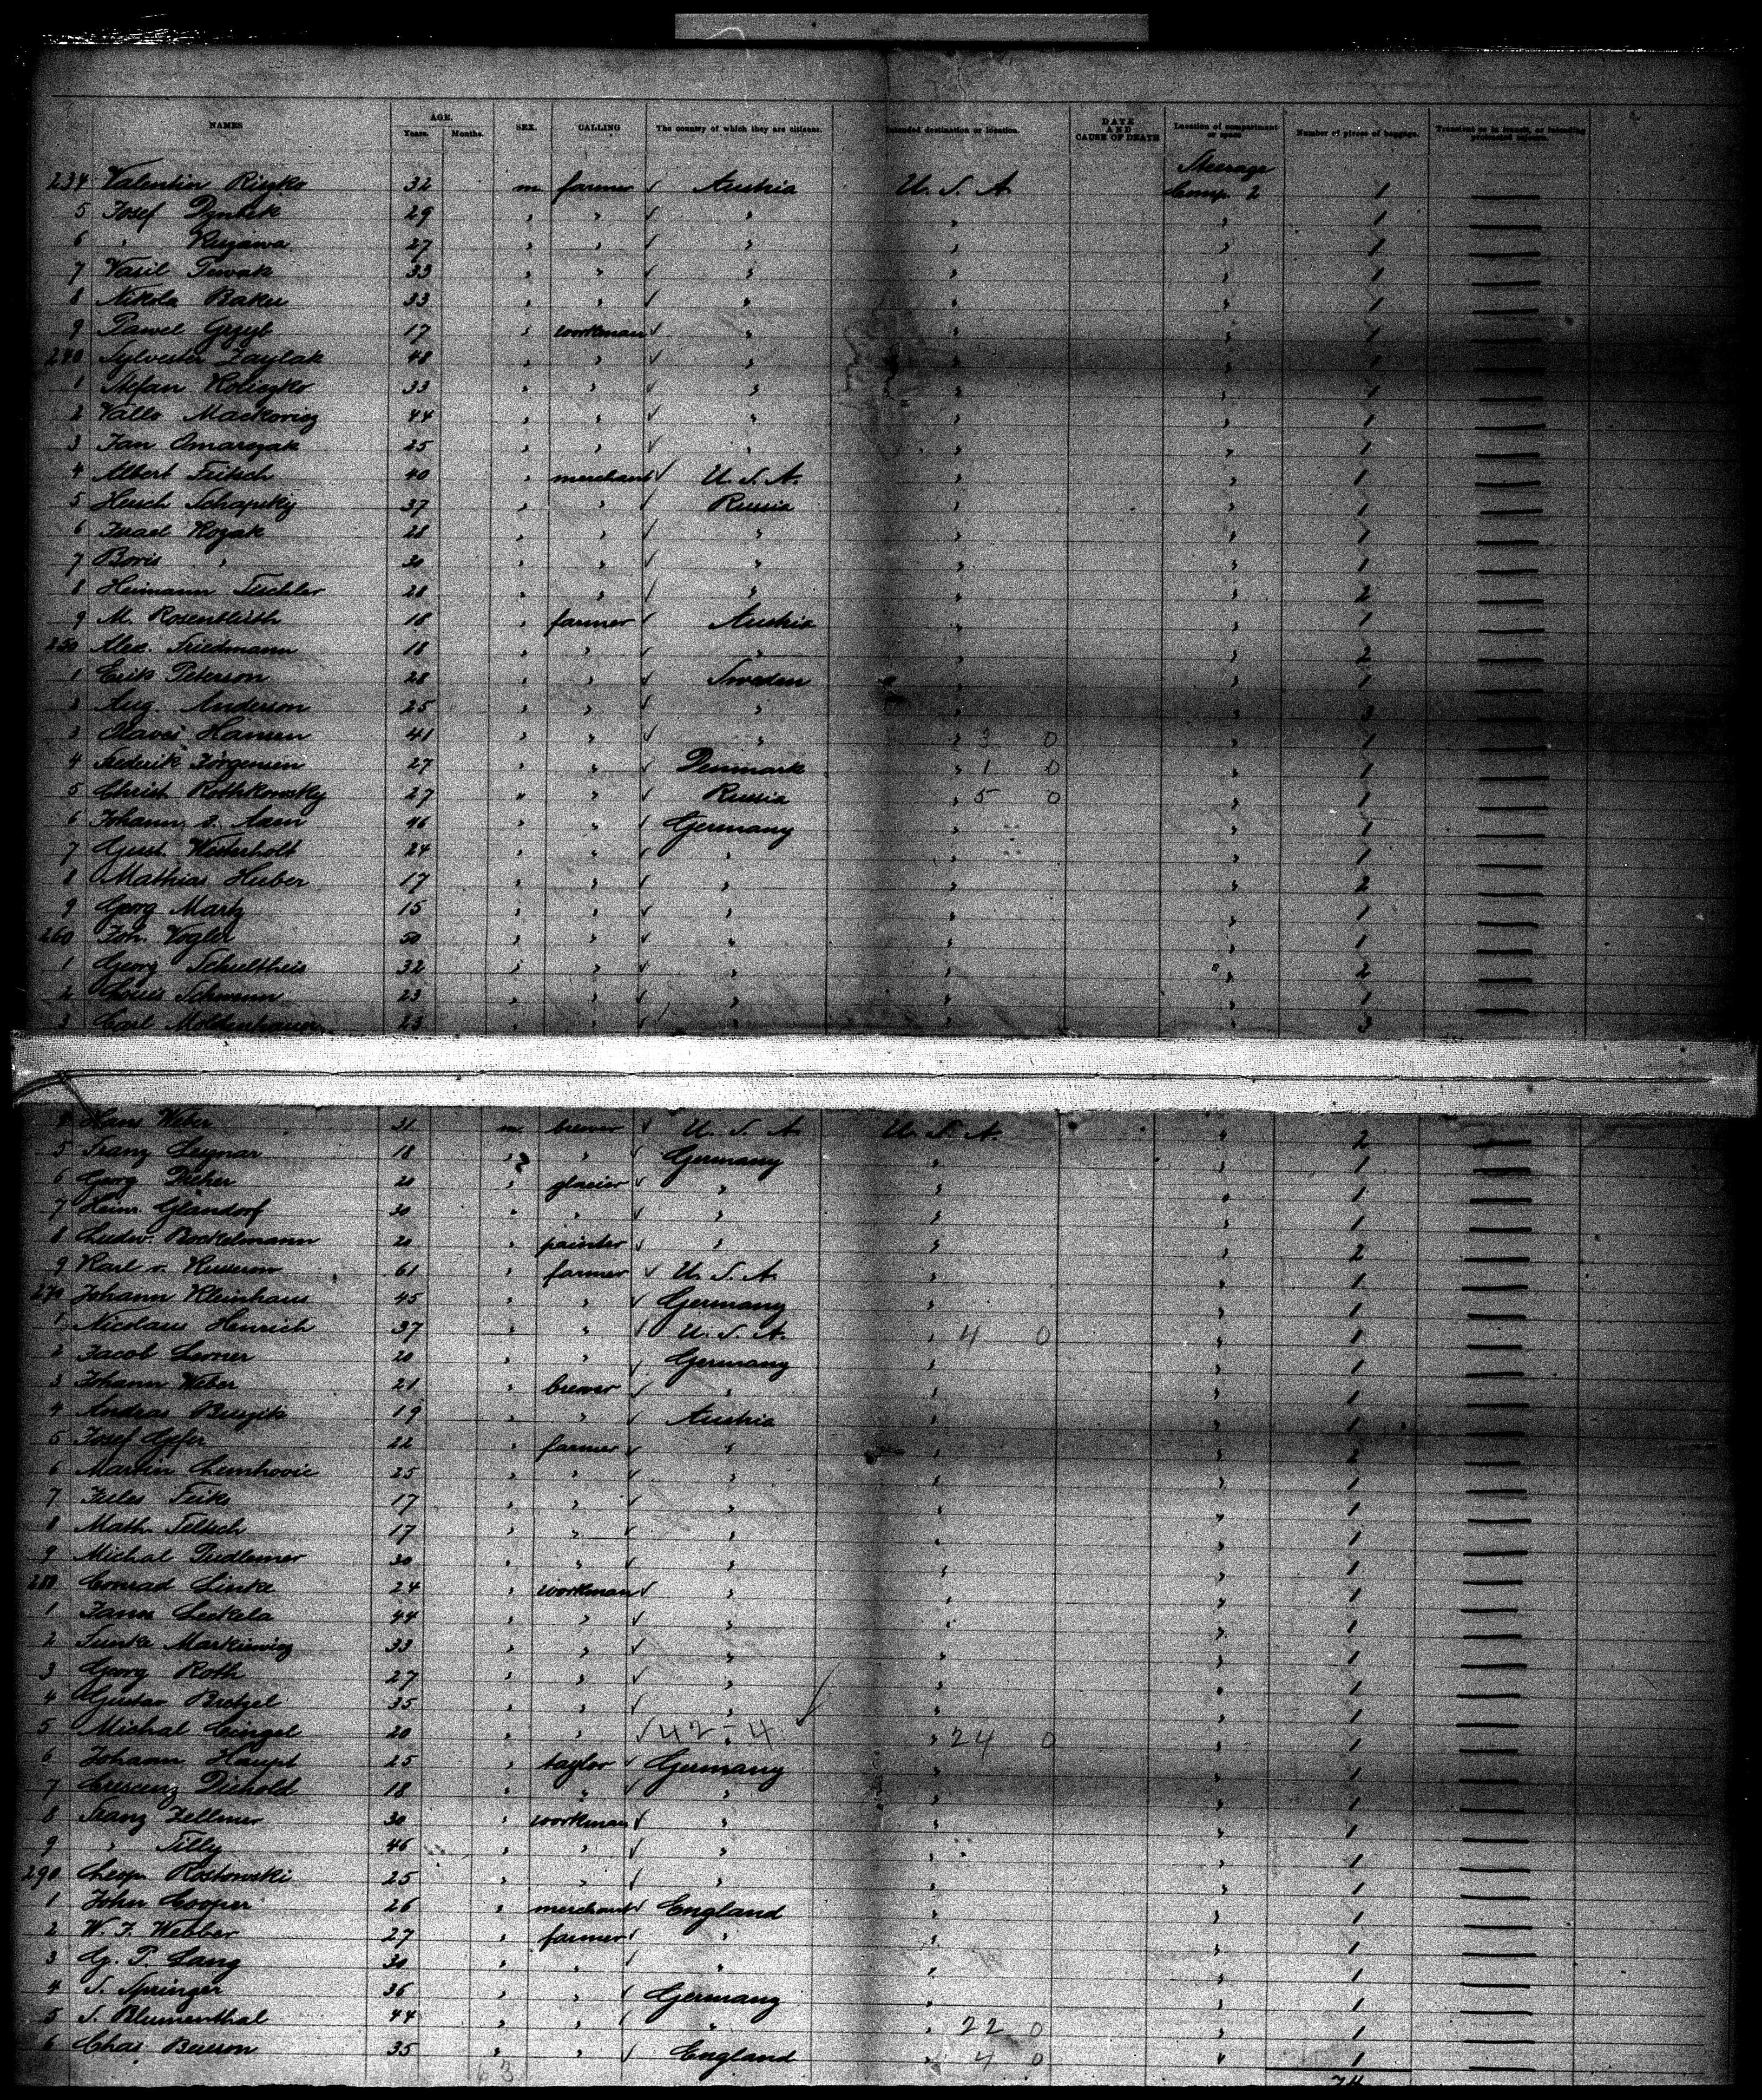 NAMES AGE. SEX. CALLING The country of which they are citizens. Intended destination or location. DATE AND CAUSE OF DEATH Location of compartment or space Number of pieces of baggage. Transient or in transit, or intending protracted sojourn.
Years. Months.
Steerage
234 Valentin 32 m farmer ✓ Austria U. S. A. Comp. 2 1 —
5 Josef 29 " " ✓ " " " 1 —
6 " 27 " " ✓ " " " 1 —
7 Vasil 33 " " ✓ " " " 1 —
8 Nikola Baku 33 " " ✓ " " " 1 —
9 Pawel Grzyb 17 " workman ✓ " " " 1 —
240 Sylvester Zaylak 48 " " ✓ " " " 1 —
1 Stefan 33 " " ✓ " " " 1 —
2 Mackovicz 44 " " ✓ " " " 1 —
3 Jan Omarszak 25 " " ✓ " " " 1 —
4 Albert 40 " merchant ✓ U. S. A. " " 1 —
5 Hersch Schapsky 37 " " ✓ Russia " " 1 —
6 Israel Kozak 28 " " ✓ " " " 1 —
7 Boris " " " ✓ " " " 1 —
8 Heimann Tischler 28 " " ✓ " " " 2 —
9 M. Rosenblüth 18 " farmer ✓ Austria " " 1 —
250 Alex. Friedmann 18 " " ✓ " " " 2 —
1 Erik Peterson 28 " " ✓ Sweden " " 1 —
2 Aug. Anderson 25 " " ✓ " " " 3 —
3 Olavus Hansen 41 " " ✓ " " 3 0 " 1 —
4 Frederik Jörgensen 27 " " ✓ Denmark " 1 0 " 1 —
5 Christ. Rothkowsky 27 " " ✓ Russia " 5 0 " 1 —
6 Johann v. 46 " " ✓ Germany " " 1 —
7 Gust. Westerholt 24 " " ✓ " " " 1 —
8 Mathias Huber 17 " " ✓ " " " 2 —
9 Georg Martz 15 " " ✓ " " " 1 —
260 Joh. Vogler 50 " " ✓ " " " 1 —
1 Georg Schultheis 32 " " ✓ " " " 2 —
2 Louis Schwenn 23 " " ✓ " " " 1 —
3 Carl Moldenhauer 23 " " " " " 3
4 Hans Weber 31 m. brewer ✓ U. S. A. U. S. A. " 2 —
5 Franz 18 " " ✓ Germany " " 1 —
6 Georg 20 " glacier ✓ " " " 1 —
7 Heinr. Glandorf 30 " " ✓ " " " 1 —
8 Ludw. Bockelmann 20 " painter ✓ " " " 2 —
9 Karl v. Kusserow 61 " farmer ✓ U. S. A. " " 1 —
270 Johann Kleinhans 45 " " ✓ Germany " " 1 —
1 Nicolaus Henrich 37 " " ✓ U. S. A. " 4 0 " 1 —
2 Jacob Lerner 20 " " ✓ Germany " " 1 —
3 Johann Weber 21 " brewer ✓ " " " 1 —
4 Andras 19 " " ✓ Austria " " 1 —
5 Josef 22 " farmer ✓ " " " 2 —
6 Martin 25 " " ✓ " " " 1 —
7 Jules 17 " " ✓ " " " 1 —
8 Math. Feltsch 17 " " ✓ " " " 1 —
9 Michal 30 " " ✓ " " " 1 —
280 Conrad Linke 24 " workman ✓ " " " 1 —
1 44 " " ✓ " " " 1 —
2 Markiewicz 33 " " ✓ " " " 1 —
3 Georg Roth 27 " " ✓ " " " 1 —
4 Gustav Bretzel 35 " " ✓ " " " 1 —
5 Michal Cingel 20 " " ✓ 42-4 ✓ " 24 0 " 1 —
6 Johann Haupt 25 " taylor ✓ Germany " " 1 —
7 Crescenz Diebold 18 " " ✓ " " " 1 —
8 Franz Zellmer 30 " workman ✓ " " " 1 —
9 " Tilly 46 " " ✓ " " " 1 —
290 Leop. Rostowski 25 " " ✓ " " " 1 —
1 John Cooper 26 " merchant ✓ England " " 1 —
2 W. F. Webber 27 " farmer ✓ " " " 1 —
3 G. P. Lang 30 " " ✓ " " " 1 —
4 S. Springer 36 " " ✓ Germany " " 1 —
5 S. Blumenthal 44 " " ✓ " " 22 0 " 1 —
6 Chas. 35 " " ✓ England " 4 0 " 1 —
63 74